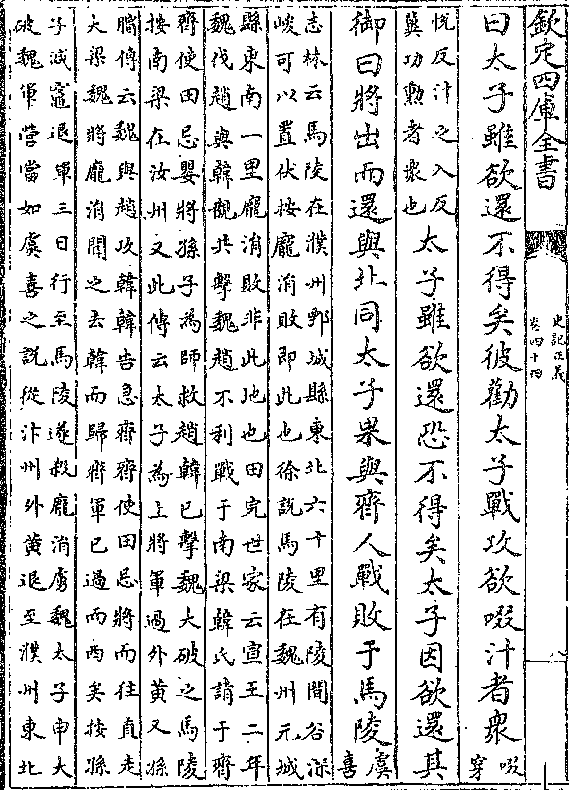 欽定四庫全書
史記正義
卷四十四
八
曰太子雖欲還不得矣彼勸太子戰攻欲啜汁者衆
啜穿
悦反汁之入反
冀功勲者衆也
太子雖欲還恐不得矣太子因欲還其
御曰將出而還與北同太子果與齊人戰敗于馬陵
虞喜
志林云馬陵在濮州鄄城縣東北六十里有陵澗谷深
峻可以置伏按龐涓敗即此也徐説馬陵在魏州元城
縣東南一里龐涓敗非此地也田完世家云宣王二年
魏伐趙趙與韓親共擊魏趙不利戰于南梁韓氏請于齊
齊使田忌嬰將孫子為師救趙韓已擊魏大破之馬陵
按南梁在汝州又此傳云太子為上將軍過外黄又孫
臏傳云魏與趙攻韓韓告急齊齊使田忌將而往直走
大梁魏將龐涓聞之去韓而歸齊軍已過而西矣按孫
子減竈退軍三日行至馬陵遂殺龐涓虜魏太子申大
破魏軍營當如虞喜之説從汴州外黄退至濮州東北